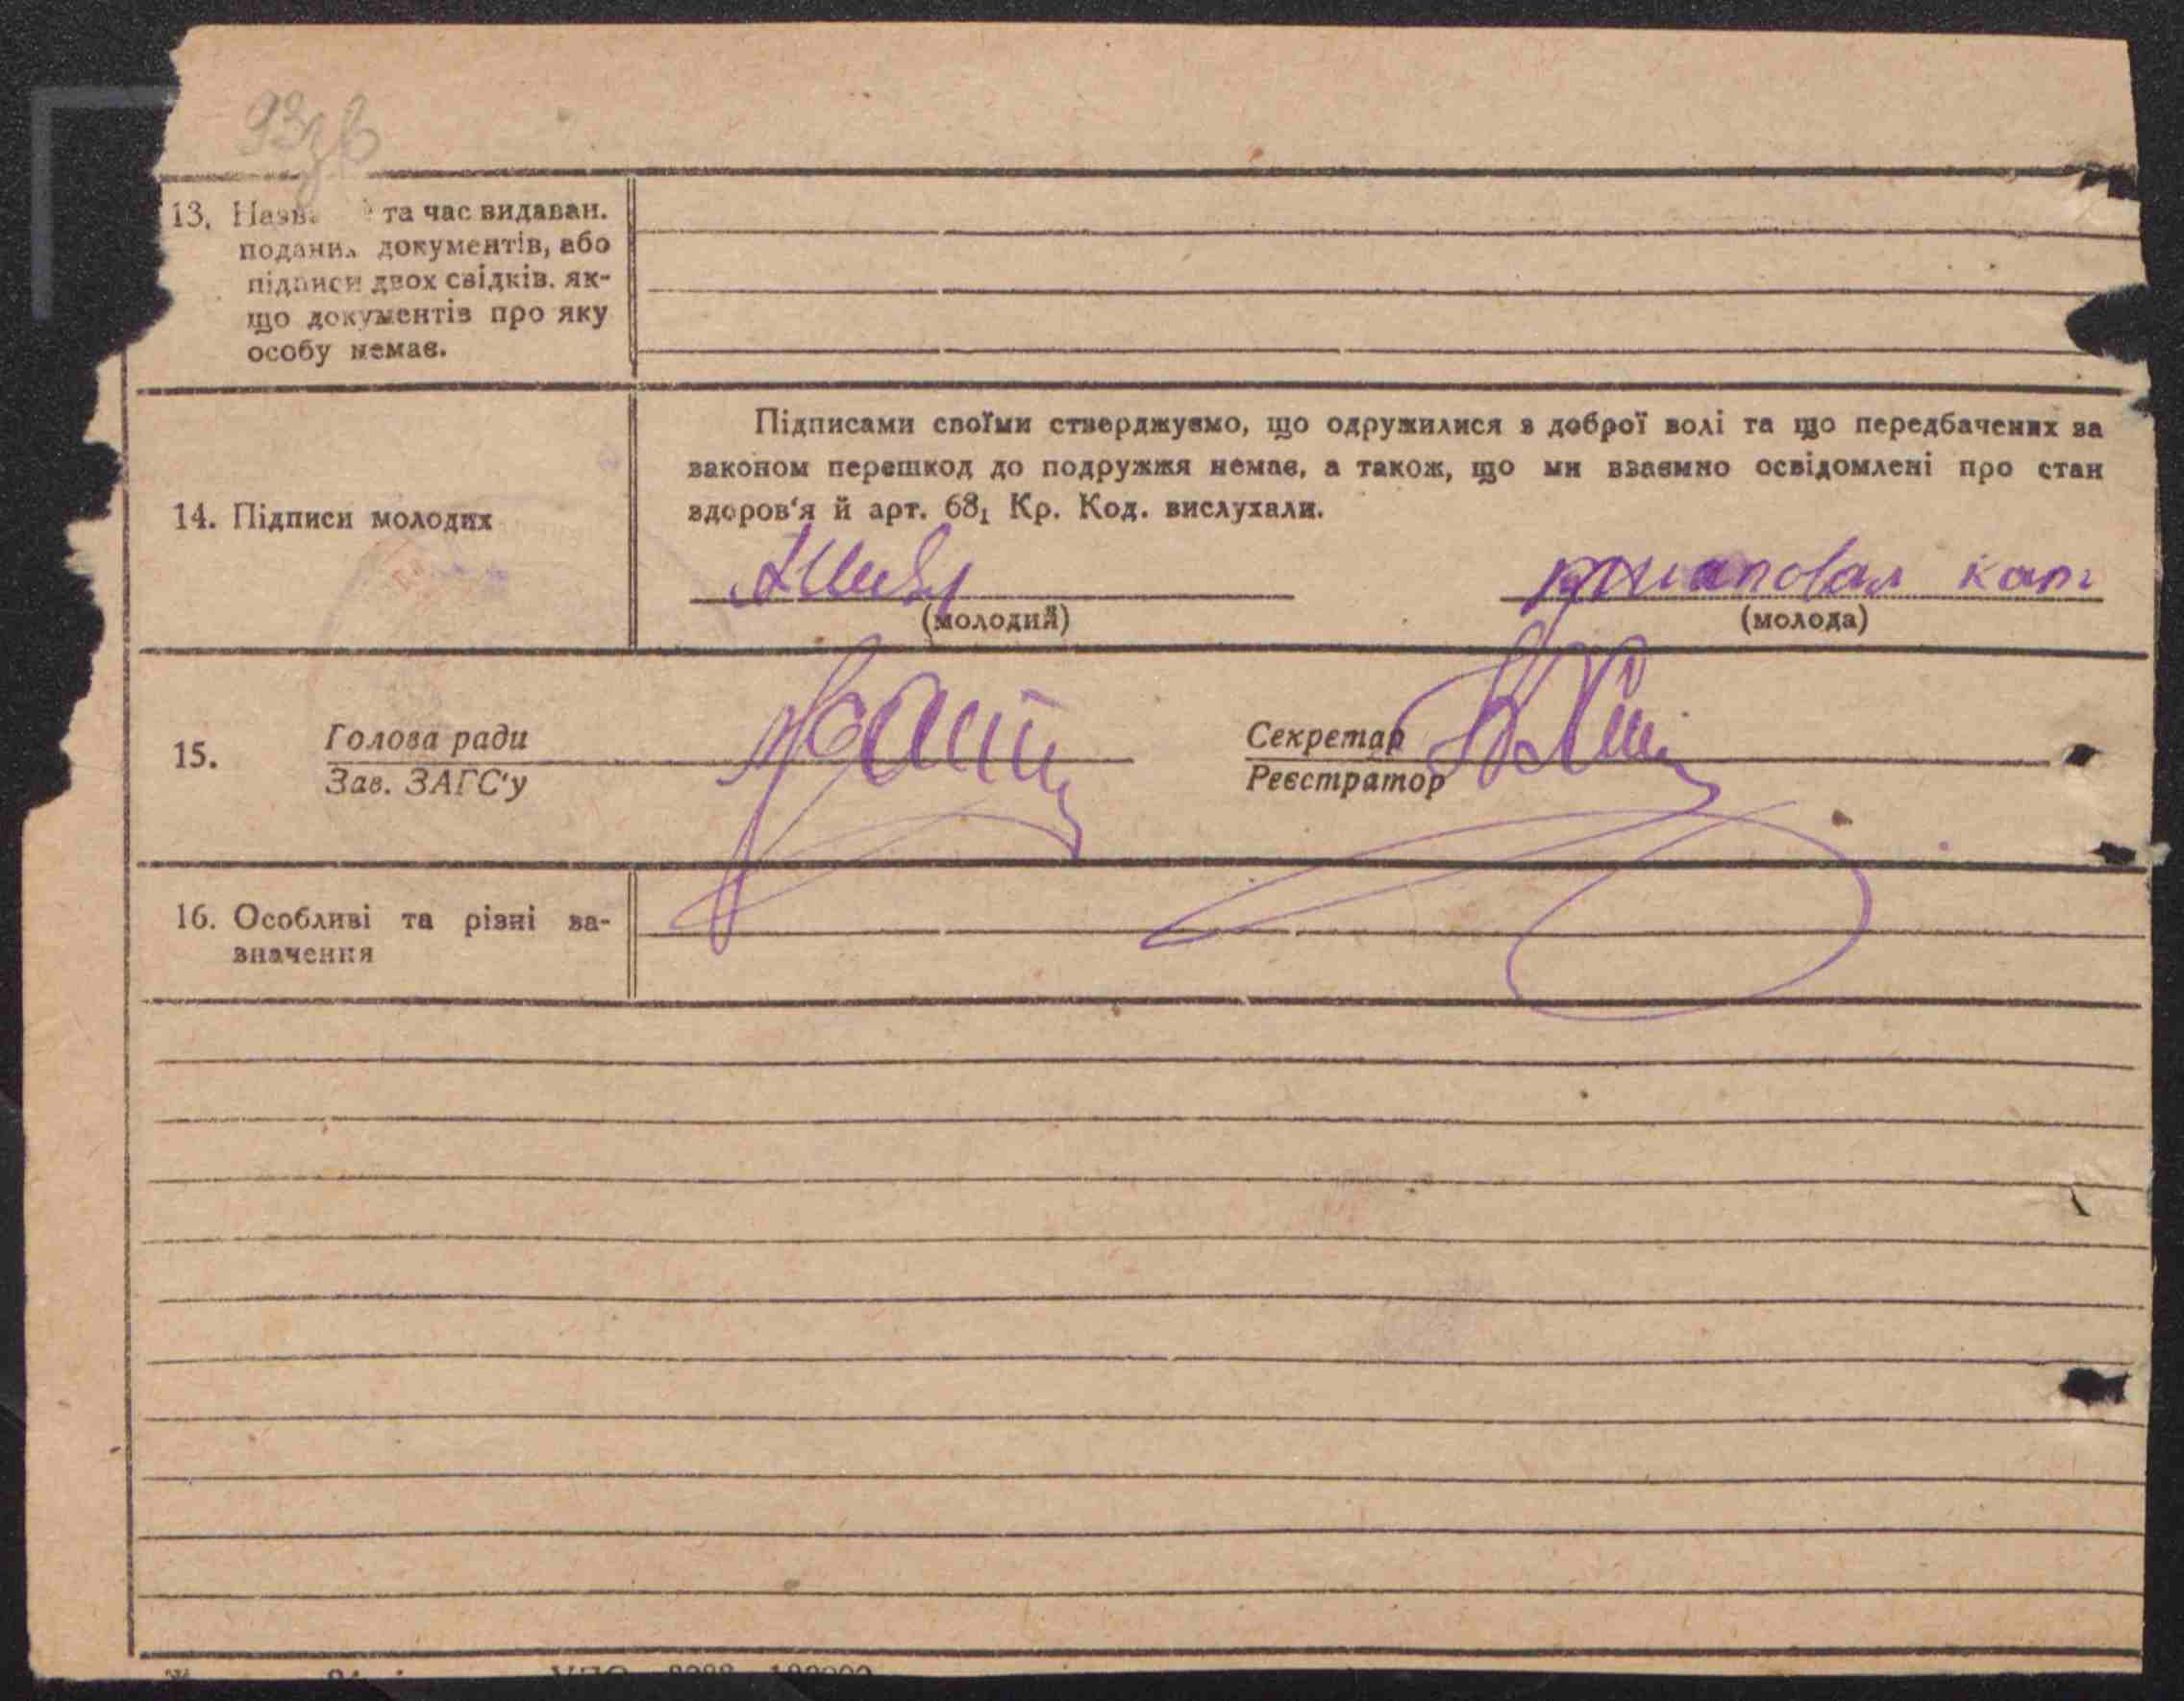 93зв
13. Назва та час видаван.
поданих документів, або
підписи двох свідків, як-
що документів про яку
особу немає.
Підписами своїми стверджуємо, що одружилися з доброї волі та що передбачених за
законом перешкод до подружжя немає, а також, що ми взаємно освідомлені про стан
здоров'я й арт. 68₁ Кр. Код. вислухали.
14. Підписи молодих
(молодий)
(молода)
15.
Голова ради
Зав. ЗАГС'у
Секретар
Реєстратор
16. Особливі та різні за-
значення